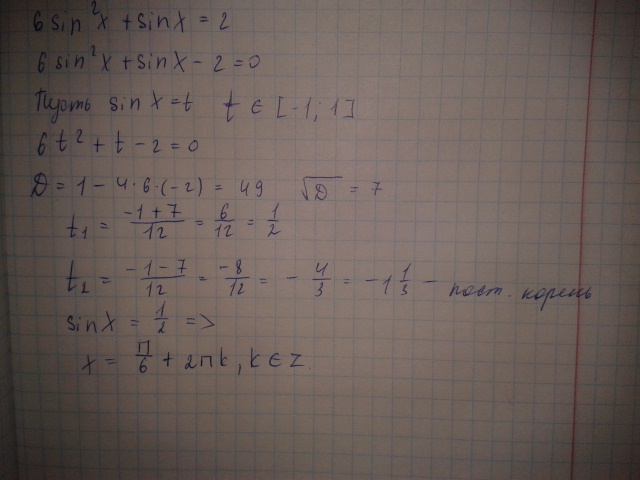 6 sin²x + sin x = 2
6 sin²x + sin x - 2 = 0
Пусть sin x = t t ∈ [-1; 1]
6t² + t - 2 = 0
D = 1 - 4·6·(-2) = 49 √D = 7
t₁ = (-1+7)/12 = 6/12 = 1/2
t₂ = (-1-7)/12 = -8/12 = -4/3 = -1 1/3 - пост. корень
sin x = 1/2 =>
x = π/6 + 2πk, k ∈ Z.